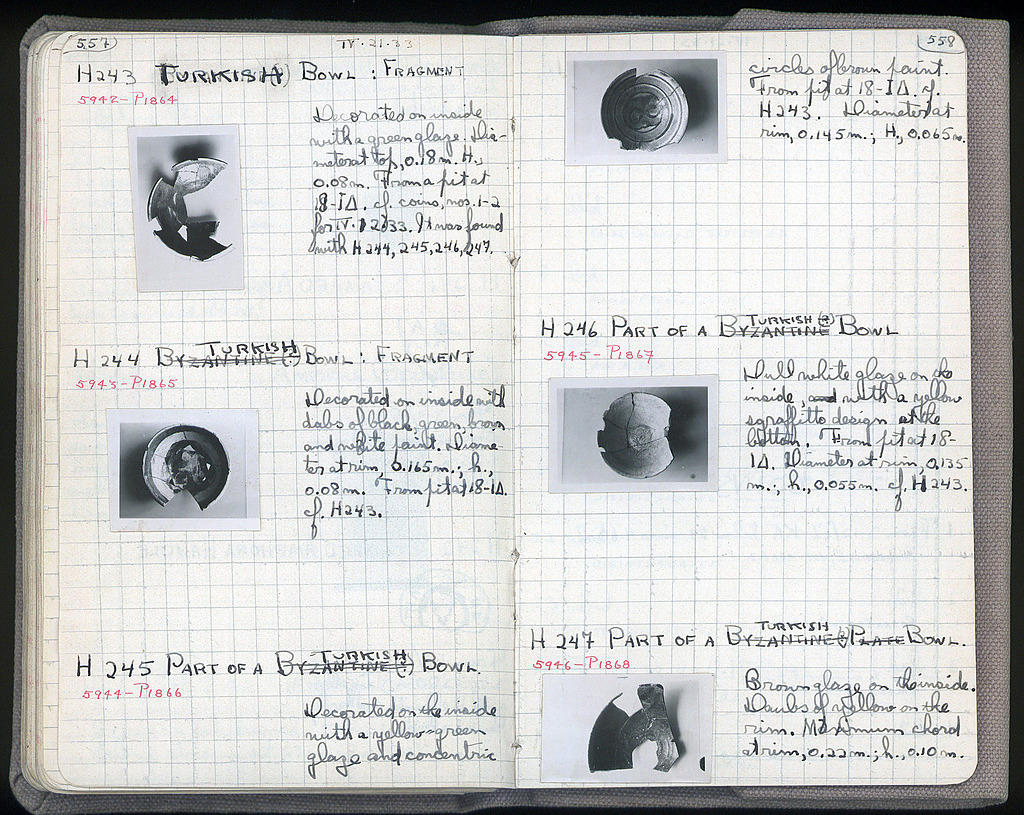 557
IV·21·33
H243 TURKISH(?) BOWL : FRAGMENT
5942-P1864
Decorated on inside
with a green glaze. Dia-
meter at top, 0.18 m. H.,
0.08 m. From a pit at
18-ΙΔ. cf. coins, nos. 1-2
for IV·12·33. It was found
with H244, 245, 246, 247.
TURKISH
H 244 BYZANTINE(?) BOWL : FRAGMENT
5943-P1865
Decorated on inside with
dabs of black, green, brown
and white paint. Diame-
ter at rim, 0.165 m.; h.,
0.08 m. From pit at 18-ΙΔ.
cf. H243.
TURKISH
H 245 PART OF A BYZANTINE(?) BOWL.
5944-P1866
Decorated on the inside
with a yellow-green
glaze and concentric
558
circles of brown paint.
From pit at 18-ΙΔ. cf.
H243. Diameter at
rim, 0.145 m.; H, 0.065 m.
TURKISH (?)
H 246 PART OF A BYZANTINE BOWL
5945-P1867
Dull white glaze on the
inside, and with a yellow
sgraffitto design at the
bottom. From pit at 18-
ΙΔ. Diameter at rim, 0.135
m.; h., 0.055 m. cf. H243.
TURKISH
H 247 PART OF A BYZANTINE(?) PLATE BOWL.
5946-P1868
Brown glaze on the inside.
Daubs of yellow on the
rim. Maximum chord
at rim, 0.22 m.; h., 0.10 m.